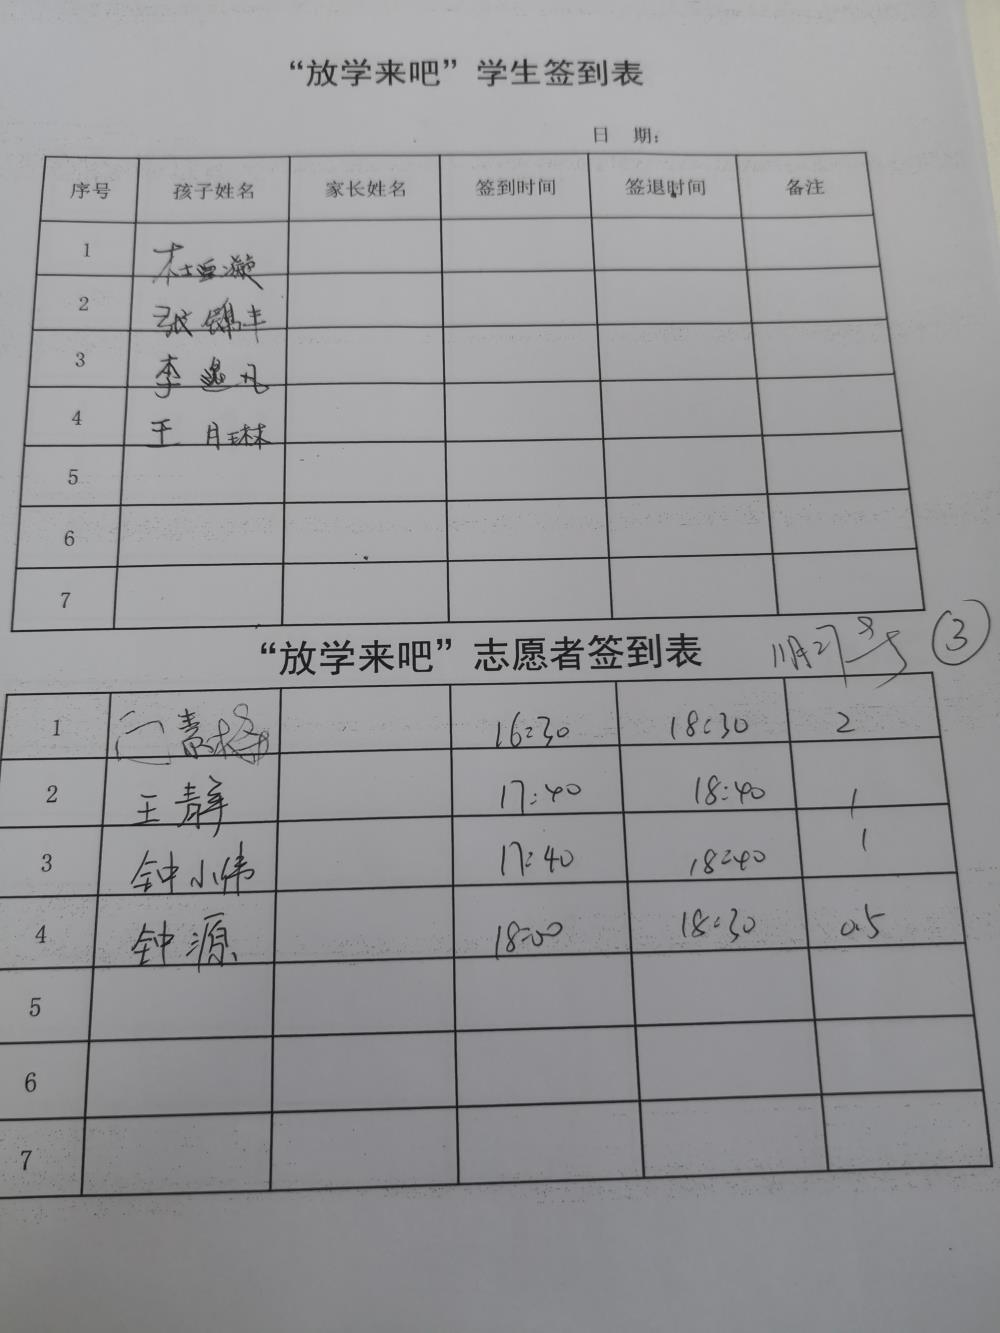 “放学来吧”学生签到表
日 期：
序号 孩子姓名 家长姓名 签到时间 签退时间 备注
1 杜亚凝
2 张锦丰
3 李逸凡
4 王月琳
5
6
7
“放学来吧”志愿者签到表 11月27号 ③
1 16:30 18:30 2
2 王静 17:40 18:40 1
3 钟小伟 17:40 18:40 1
4 钟源 18:00 18:30 0.5
5
6
7